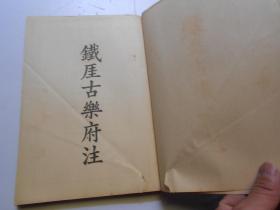 鐵厓古樂府注